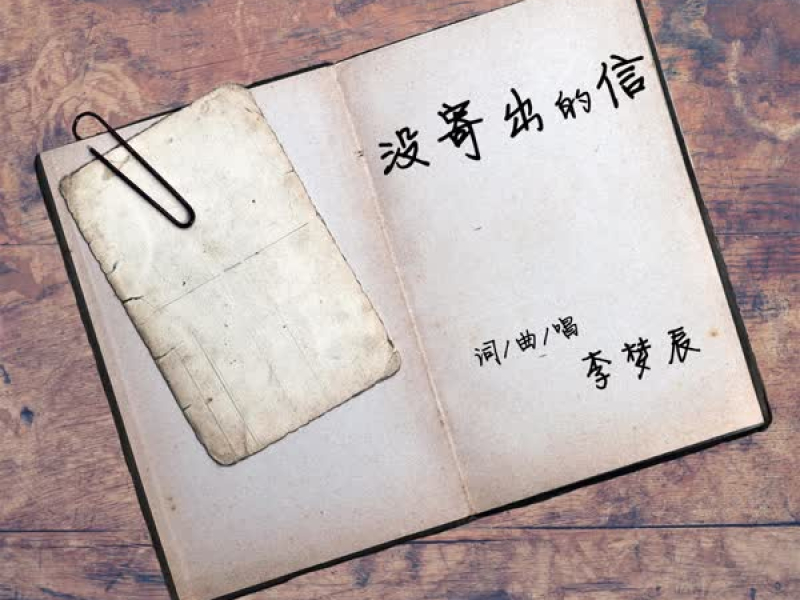 没寄出的信
词/曲/唱
李梦辰